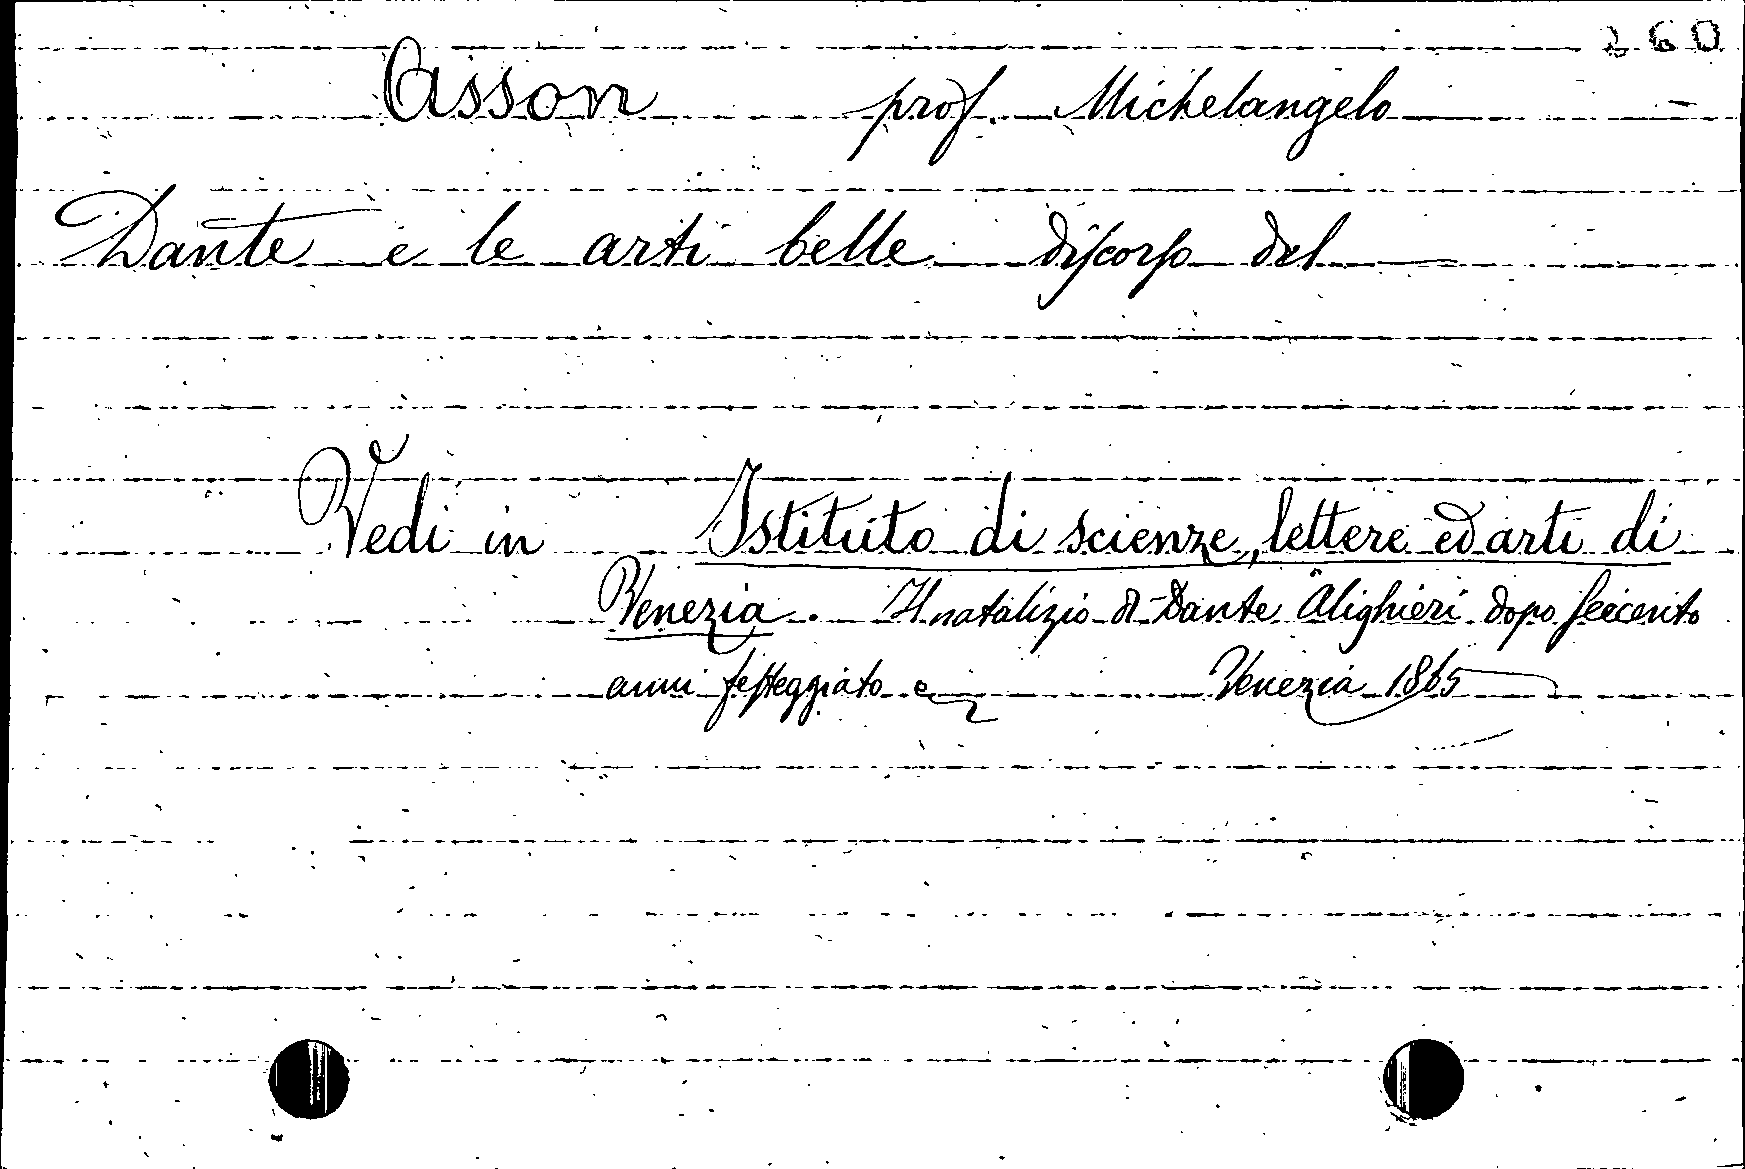 260
Asson prof. Michelangelo
Dante e le arti belle discorso del
Vedi in Istituto di scienze, lettere ed arti di
Venezia. Il natalizio di Dante Alighieri dopo seicento
anni festeggiato Venezia 1865